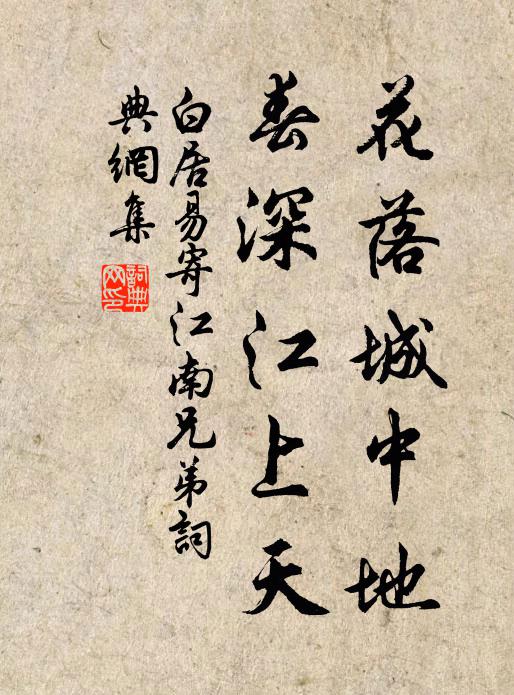 花落城中地
春深江上天
白居易寄江南兄弟詞
典網集
詞典網印